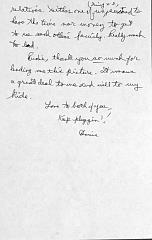 relatives. Neither one of us seemed to
have the time nor money to get
to see each other's family. Really much
too bad.
thank you so much for
lending me this picture. It means
a great deal to me and will to my
kids.
Love to both of you,
Keep pluggin'!